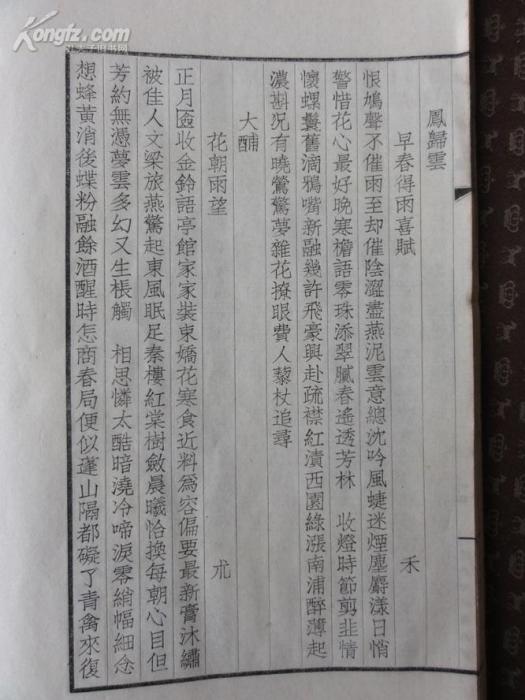 Kongfz.com
鳳歸雲
早春得雨喜賦
禾
恨鳩聲不催雨至却催陰澀盡燕泥雲意總沈吟風蜨迷煙塵麝漾日悄
警惜花心最好晚寒檐語零珠添翠膩春遙透芳林 收燈時節剪韭情
懷螺鬟舊滴鴉嘴新融幾許飛豪興赴疏襟紅漬西園綠漲南浦醉薄起
濃斟况有曉鶯驚夢雜花撩眼費人藜杖追尋
大酺
花朝雨望
尣
正月收金鈴語亭館家家裝束嬌花寒食近料爲容偏要最新膏沐繡
被佳人文梁旅燕驚起東風眠足秦樓紅棠樹斂晨曦恰換每朝心目但
芳約無憑夢雲多幻又生棖觸 相思憐太酷暗澆冷啼淚零綃幅細念
想蜂黃消後蝶粉融餘酒醒時怎商春局便似蓬山隔都礙了青禽來復